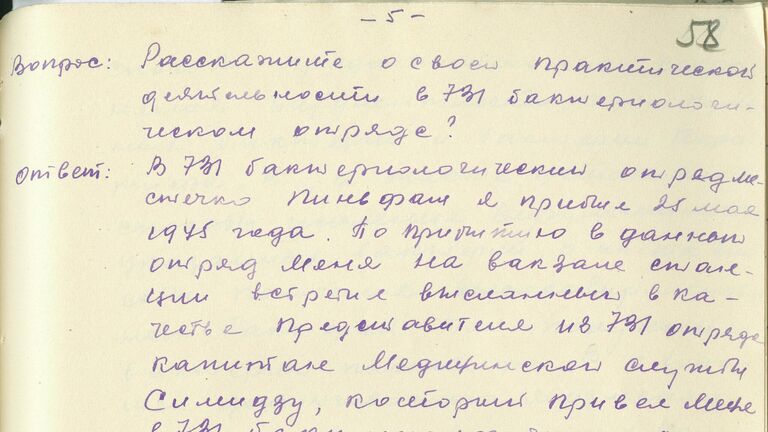 – 5 –
58
Вопрос: Расскажите о своей практической
деятельности в 731 бактериологи-
ческом отряде?
Ответ: В 731 бактериологический отряд ме-
стечко Пиньфан я прибыл 25 мая
1945 года. По прибытию в данный
отряд меня на вокзале стан-
ции встретил высланный в ка-
честве представителя из 731 отряда
капитан медицинской службы
Симидзу, который привел меня
в 731